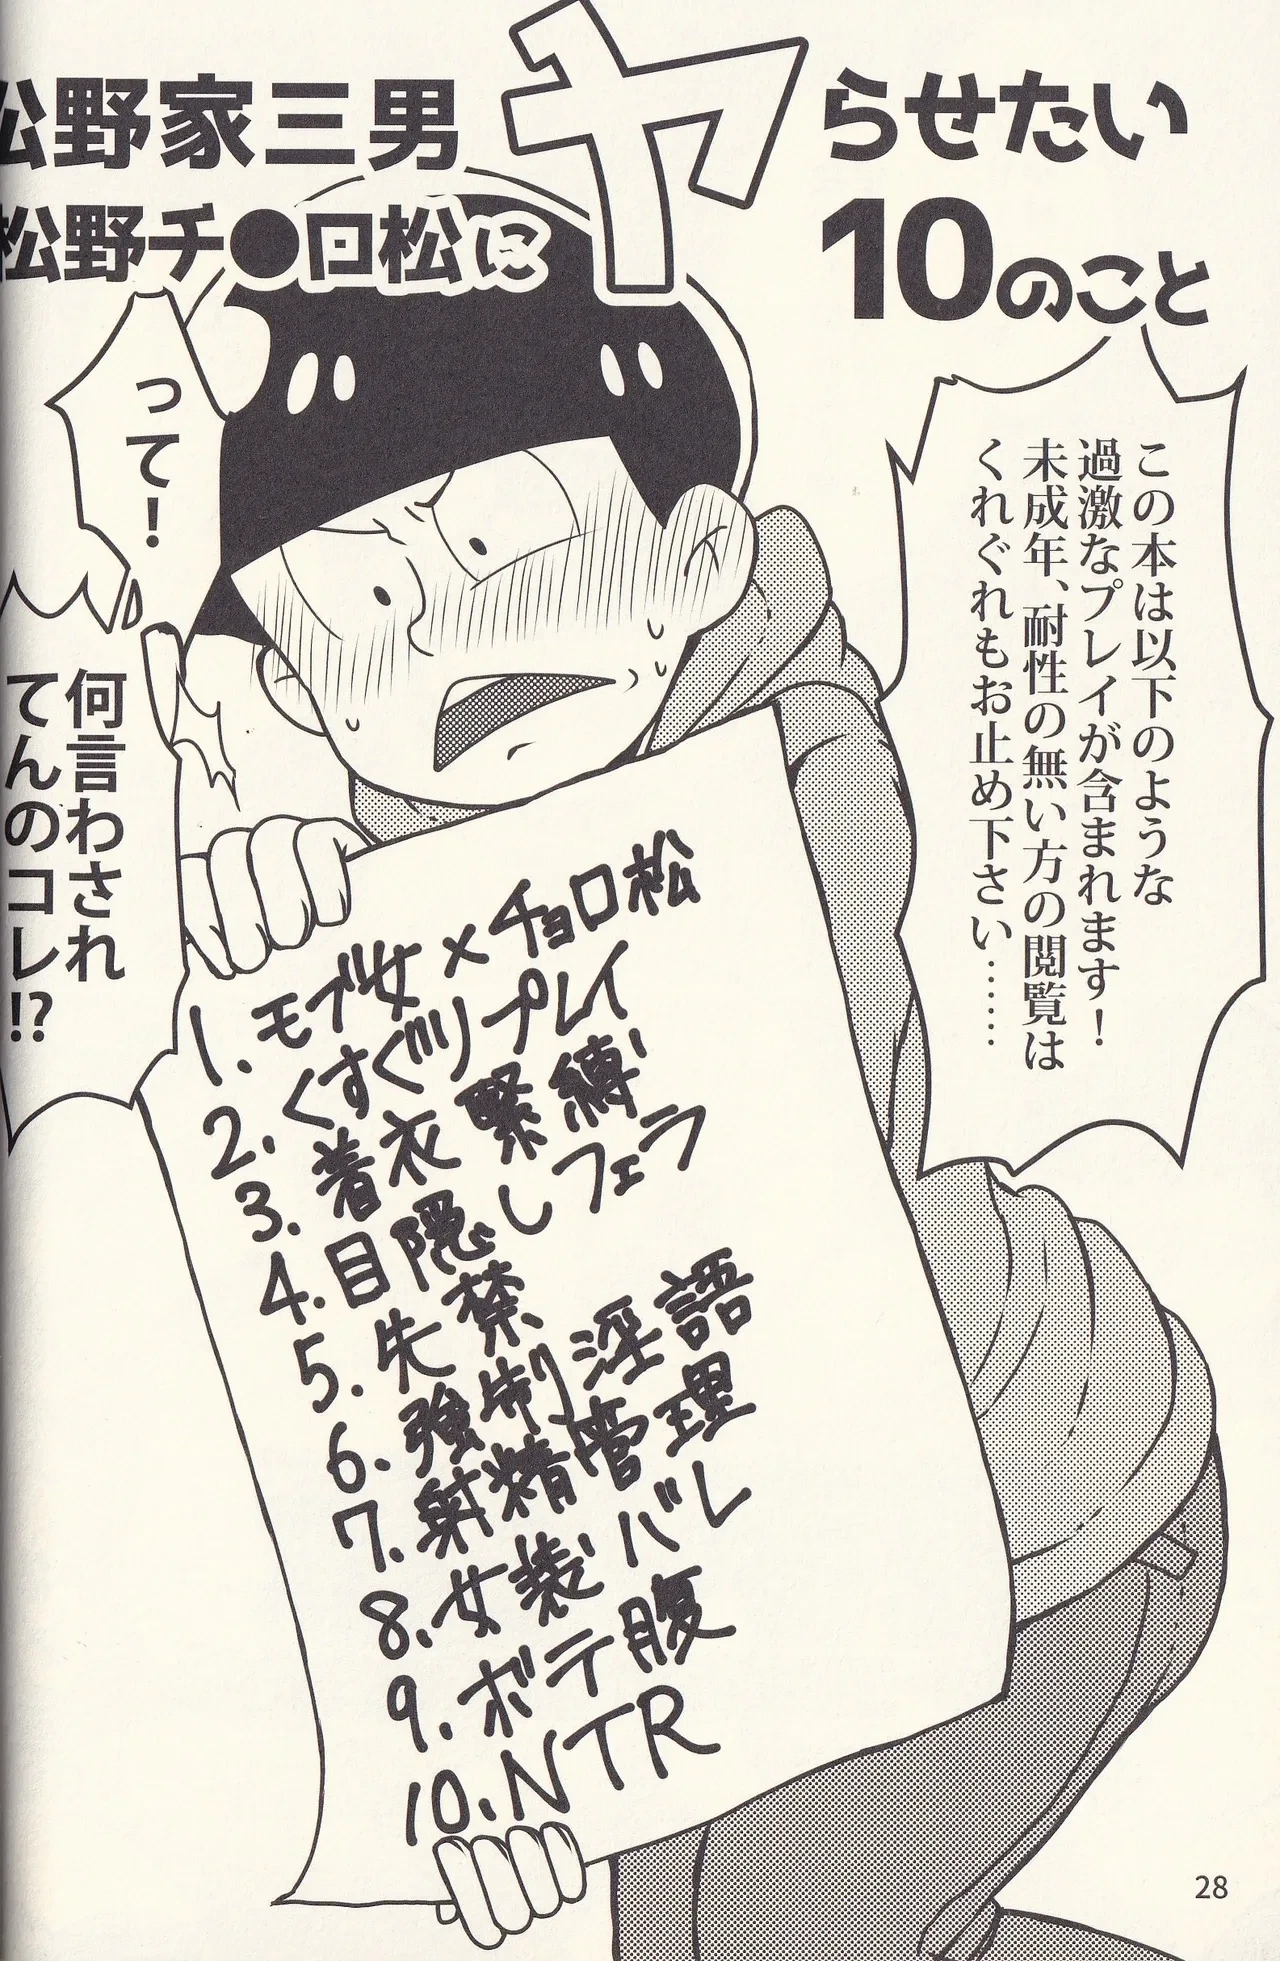 松野家三男
松野チ●ロ松に
ヤらせたい
10のこと
この本は以下のような
過激なプレイが含まれます！
未成年、耐性の無い方の閲覧は
くれぐれもお止め下さい……
って！
何言わされ
てんのコレ!?
1. モブ女×チョロ松
2. くすぐりプレイ
3. 着衣緊縛
4. 目隠しフェラ
5. 失禁
6. 強制淫語
7. 射精管理
8. 女装バレ
9. ボテ腹
10. NTR
28